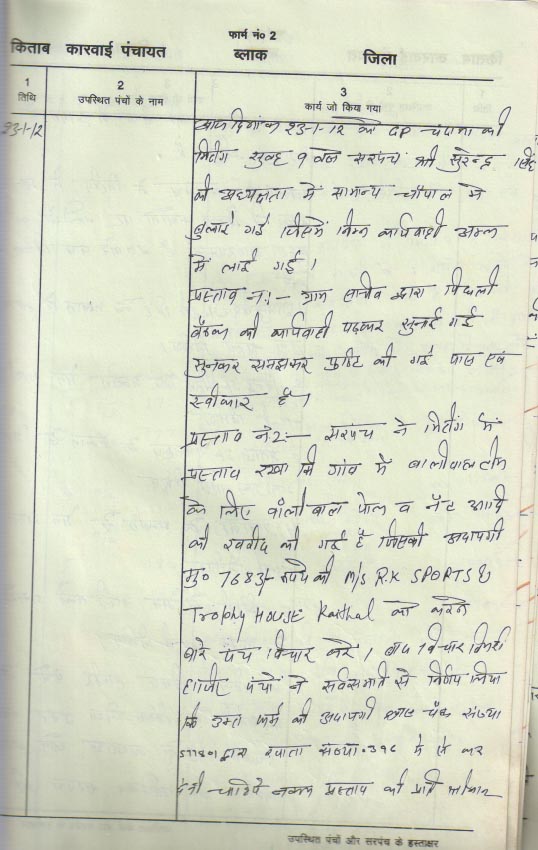 फार्म नं० 2
किताब कारवाई पंचायत ब्लाक जिला
1 2 3
तिथि उपस्थित पंचों के नाम कार्य जो किया गया
23-1-12 आज दिनांक 23-1-12 को GP चंदाना की
मिटिंग सुबह 9 बजे सरपंच श्री सुरेन्द्र सिंह
की अध्यक्षता में सामान्य चौपाल में
बुलाई गई जिसमें निम्न कार्यवाही अमल
में लाई गई।
प्रस्ताव न:1- ग्राम सचिव द्वारा पिछली
बैठक की कार्यवाही पढ़कर सुनाई गई
सुनकर समझकर पुष्टि की गई पास एवं
स्वीकार है।
प्रस्ताव न:2:- सरपंच ने मिटिंग में
प्रस्ताव रखा कि गांव में वालीवाल टीम
के लिए वॉलीवाल पोल व नेट आदि
की खरीद की गई है जिसकी अदायगी
मु० 7683/- रुपये की M/S R.K SPORTS &
Trophy HOUSE Kaithal को करने
बारे पंच विचार करें। बाद विचार विमर्श
हाजिर पंचों ने सर्वसम्मति से निर्णय लिया
कि उक्त फर्म की अदायगी चैक संख्या
द्वारा खाता संख्या 396 में से कर
देनी चाहिये नकल प्रस्ताव की प्रति
उपस्थित पंचों और सरपंच के हस्ताक्षर